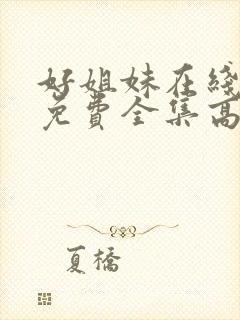 好姐妹在线
免费全集高
夏橋